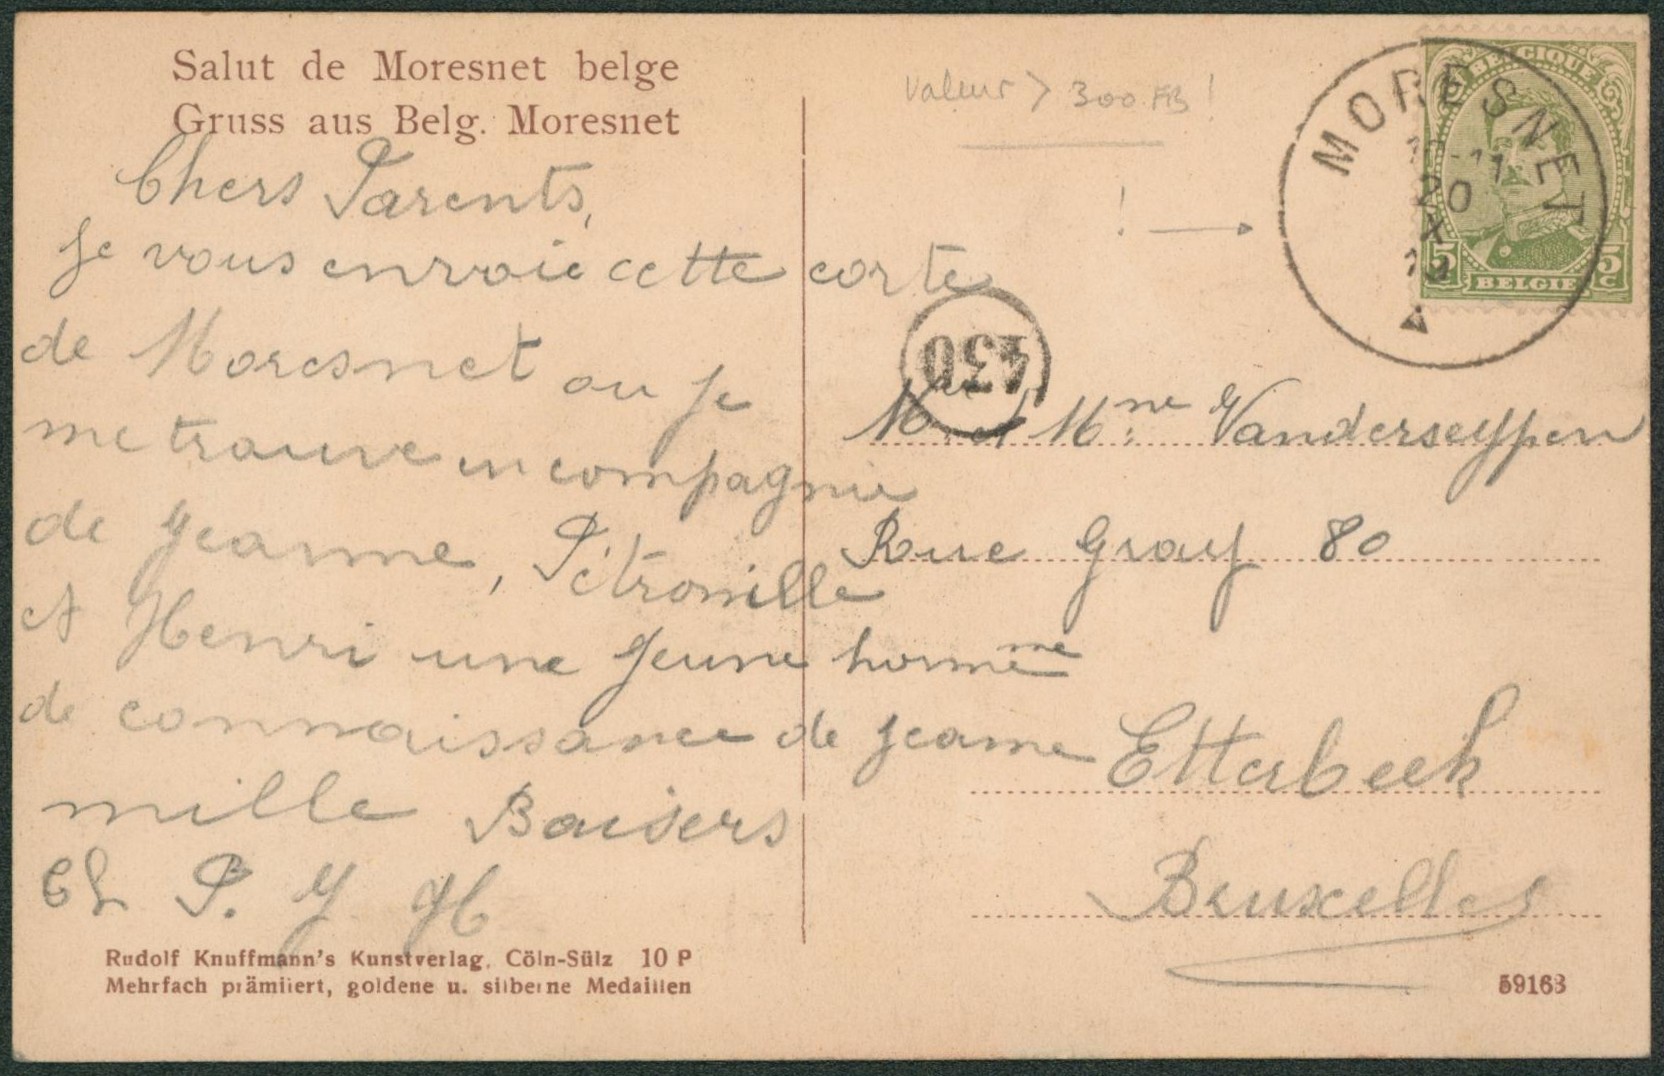 Salut de Moresnet belge
Gruss aus Belg. Moresnet
Chers Parents,
Je vous envoie cette corte
de Moresnet ou je
me trouve en compagnie
de Jeanne, Pétronille
et Henri une Jeune homme
de connaissance de Jeanne
mille Baisers
Ch P. J H
Rudolf Knuffmann's Kunstverlag, Cöln-Sülz 10 P
Mehrfach prämiiert, goldene u. silberne Medaillen
Valeur > 300 FB !
! →
MORESNET
10-11
20
X
19
BELGIQUE
5 5
c
BELGIE
430
Mr et Mme Vanderseypen
Rue Gray 80
Etterbeek
Bruxelles
59163